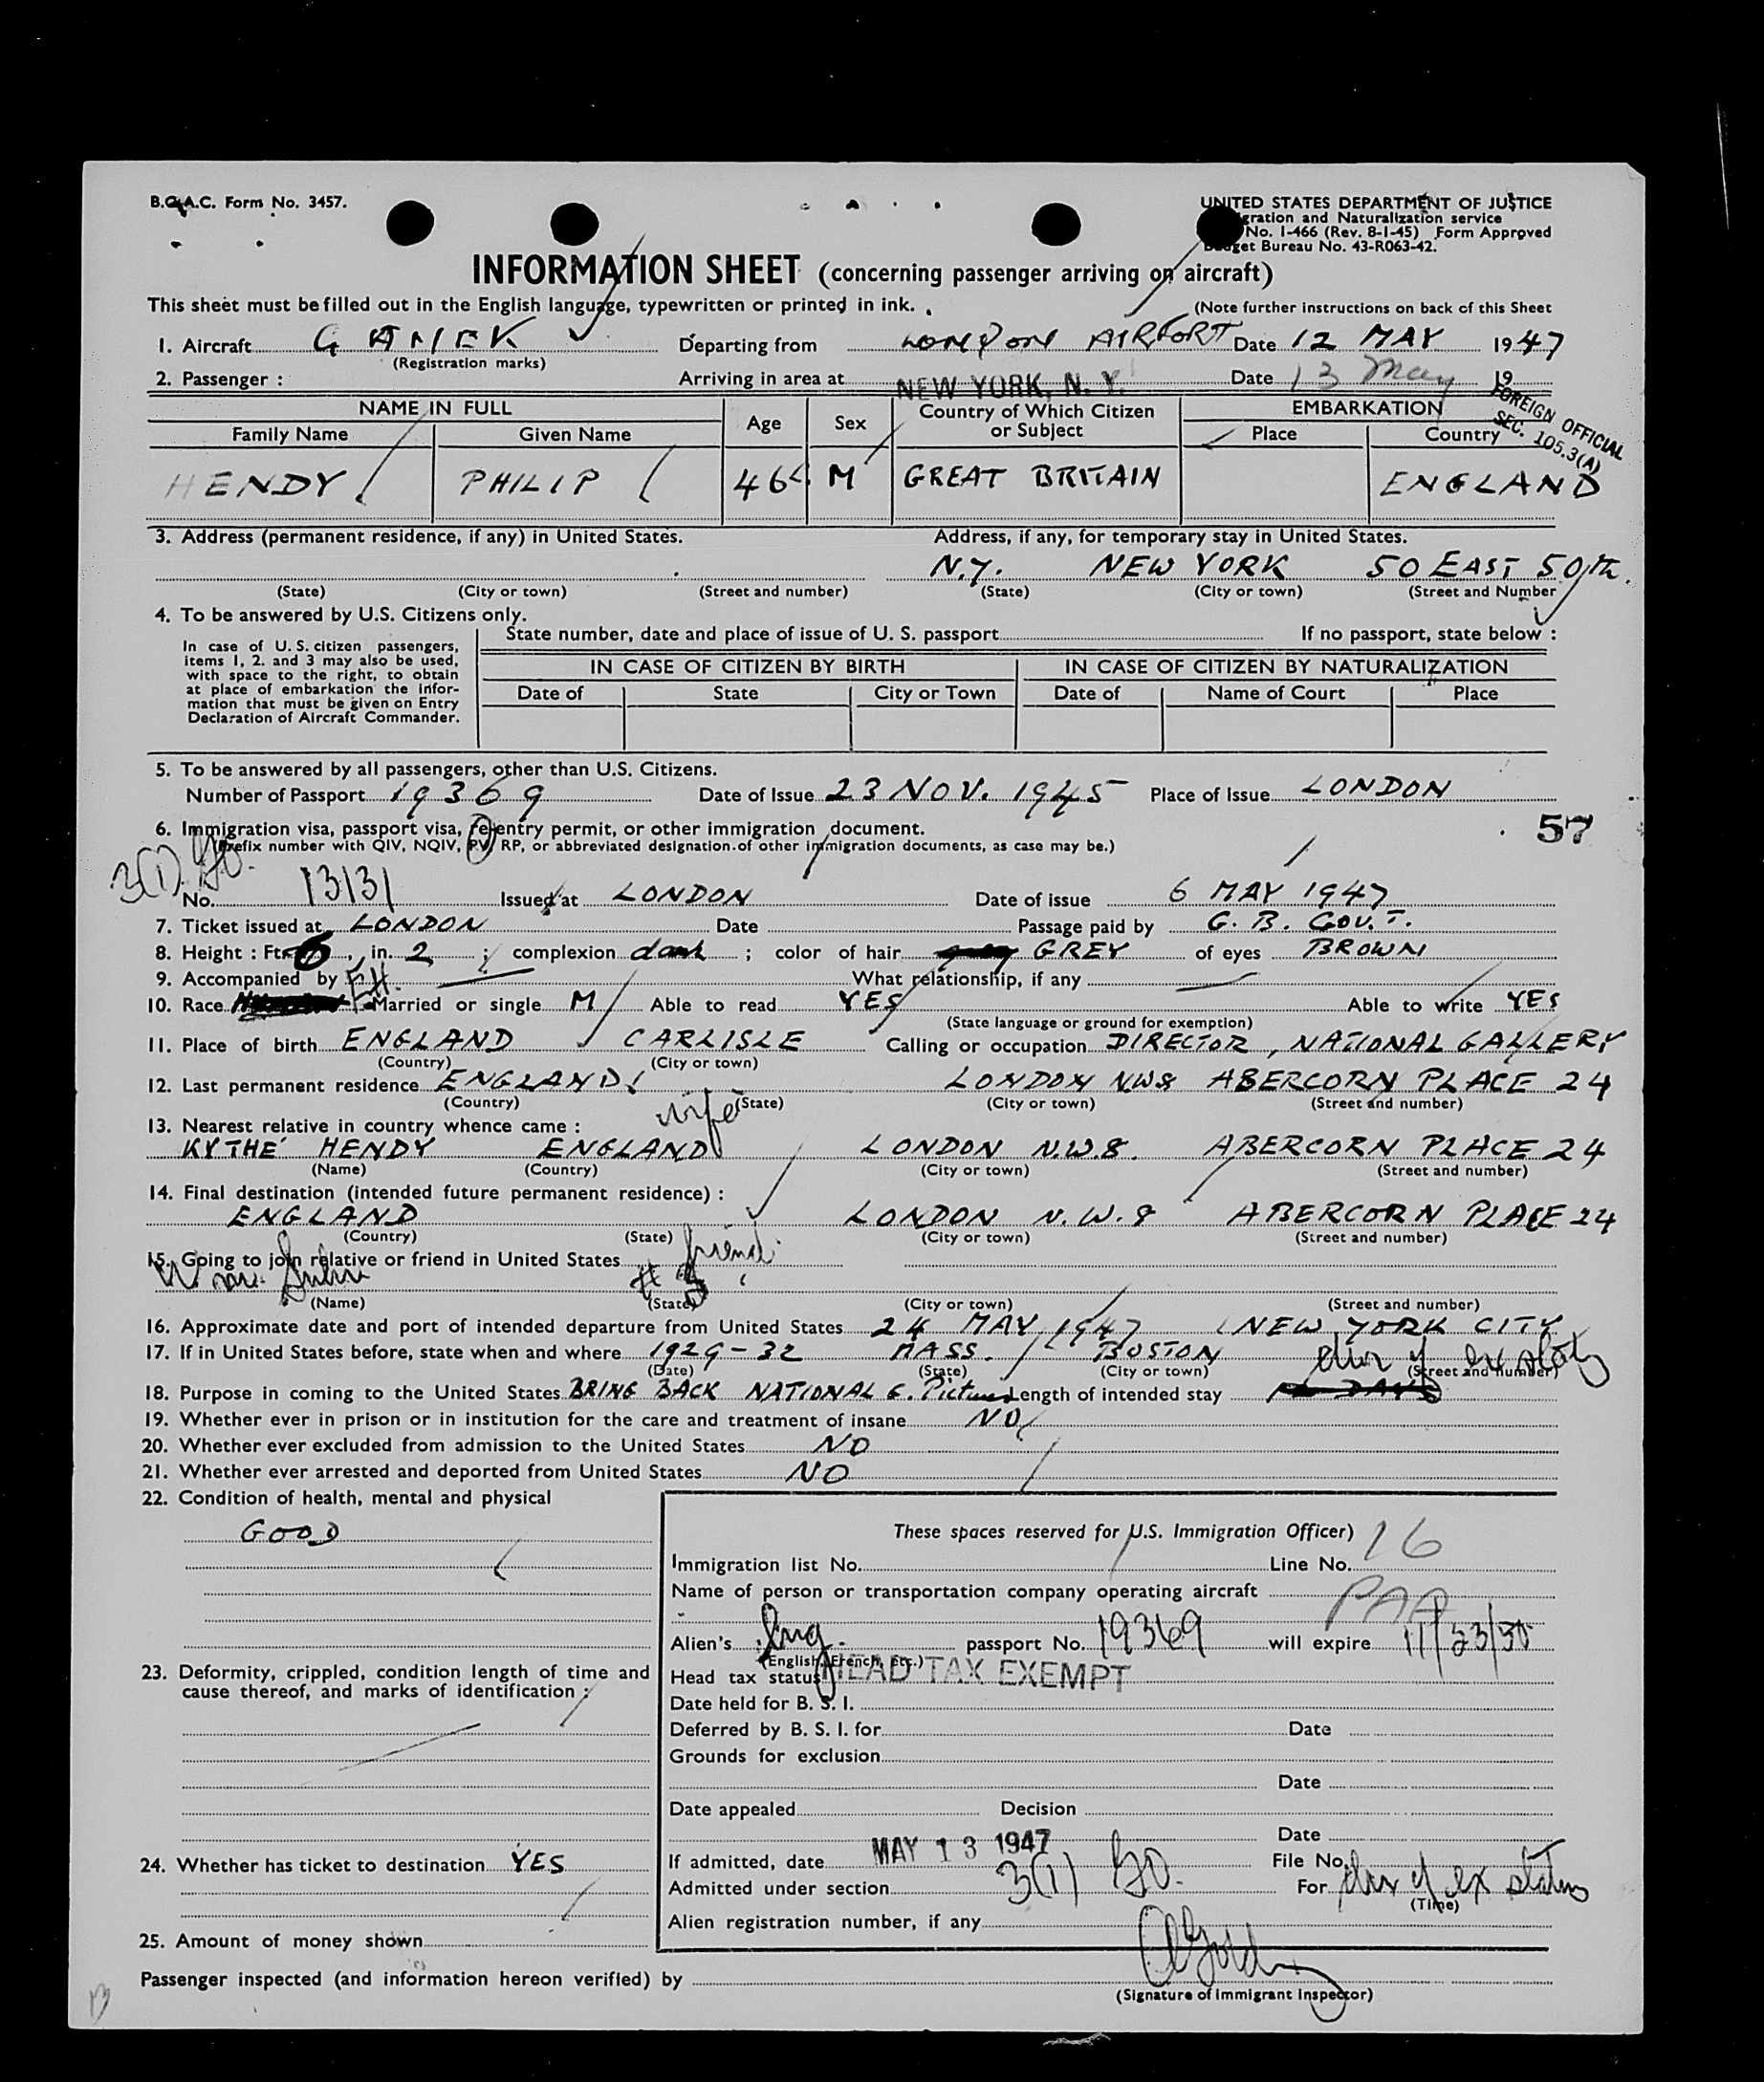 B.O.A.C. Form No. 3457.
UNITED STATES DEPARTMENT OF JUSTICE
gration and Naturalization service
No. I-466 (Rev. 8-1-45) Form Approved
get Bureau No. 43-R063-42.
INFORMATION SHEET (concerning passenger arriving on aircraft)
This sheet must be filled out in the English language, typewritten or printed in ink.
(Note further instructions on back of this Sheet
1. Aircraft Departing from LONDON AIRPORT Date 12 MAY 1947
(Registration marks)
2. Passenger : Arriving in area at NEW YORK, N. Y. Date 13 May 19
FOREIGN OFFICIAL
SEC. 105.3(A)
NAME IN FULL Age Sex Country of Which Citizen or Subject EMBARKATION
Family Name Given Name Place Country
HENDY PHILIP 46 M GREAT BRITAIN ENGLAND
3. Address (permanent residence, if any) in United States. Address, if any, for temporary stay in United States.
N.Y. NEW YORK 50 EAST 50th.
(State) (City or town) (Street and number) (State) (City or town) (Street and Number
4. To be answered by U.S. Citizens only.
In case of U. S. citizen passengers,
items 1, 2. and 3 may also be used,
with space to the right, to obtain
at place of embarkation the infor-
mation that must be given on Entry
Declaration of Aircraft Commander.
State number, date and place of issue of U. S. passport If no passport, state below :
IN CASE OF CITIZEN BY BIRTH IN CASE OF CITIZEN BY NATURALIZATION
Date of State City or Town Date of Name of Court Place
5. To be answered by all passengers, other than U.S. Citizens.
Number of Passport 19369 Date of Issue 23 NOV. 1945 Place of Issue LONDON
6. Immigration visa, passport visa, reentry permit, or other immigration document.
57
(Prefix number with QIV, NQIV, PV, RP, or abbreviated designation of other immigration documents, as case may be.)
3(1)
No. 13131 Issued at LONDON Date of issue 6 MAY 1947
7. Ticket issued at LONDON Date Passage paid by G. B. GOV.T.
8. Height : Ft. 6, in. 2 ; complexion dark ; color of hair GREY of eyes BROWN
9. Accompanied by What relationship, if any
10. Race Married or single M Able to read YES Able to write YES
(State language or ground for exemption)
11. Place of birth ENGLAND CARLISLE Calling or occupation DIRECTOR, NATIONAL GALLERY
(Country) (City or town)
12. Last permanent residence ENGLAND LONDON NW8 ABERCORN PLACE 24
(Country) (State) (City or town) (Street and number)
wife
13. Nearest relative in country whence came :
KYTHÉ HENDY ENGLAND LONDON N.W.8. ABERCORN PLACE 24
(Name) (Country) (City or town) (Street and number)
14. Final destination (intended future permanent residence) :
ENGLAND LONDON N.W.8 ABERCORN PLACE 24
(Country) (State) (City or town) (Street and number)
15. Going to join relative or friend in United States friend
(Name) (State) (City or town) (Street and number)
16. Approximate date and port of intended departure from United States 24 MAY 1947 NEW YORK CITY
17. If in United States before, state when and where 1929-32 MASS. BOSTON
(Date) (State) (City or town) (Street and number)
18. Purpose in coming to the United States BRING BACK NATIONAL G. Pictures Length of intended stay
19. Whether ever in prison or in institution for the care and treatment of insane NO
20. Whether ever excluded from admission to the United States NO
21. Whether ever arrested and deported from United States NO
22. Condition of health, mental and physical
GOOD
These spaces reserved for U.S. Immigration Officer)
Immigration list No. Line No. 16
Name of person or transportation company operating aircraft
PAA
Alien's Eng. passport No. 19369 will expire 11/23/50
(English, French, Etc.)
23. Deformity, crippled, condition length of time and
cause thereof, and marks of identification :
Head tax status HEAD TAX EXEMPT
Date held for B. S. I.
Deferred by B. S. I. for Date
Grounds for exclusion
Date
Date appealed Decision
Date
24. Whether has ticket to destination YES
If admitted, date MAY 13 1947 File No.
Admitted under section 3(1) For
(Time)
Alien registration number, if any
25. Amount of money shown
Passenger inspected (and information hereon verified) by
(Signature of Immigrant Inspector)